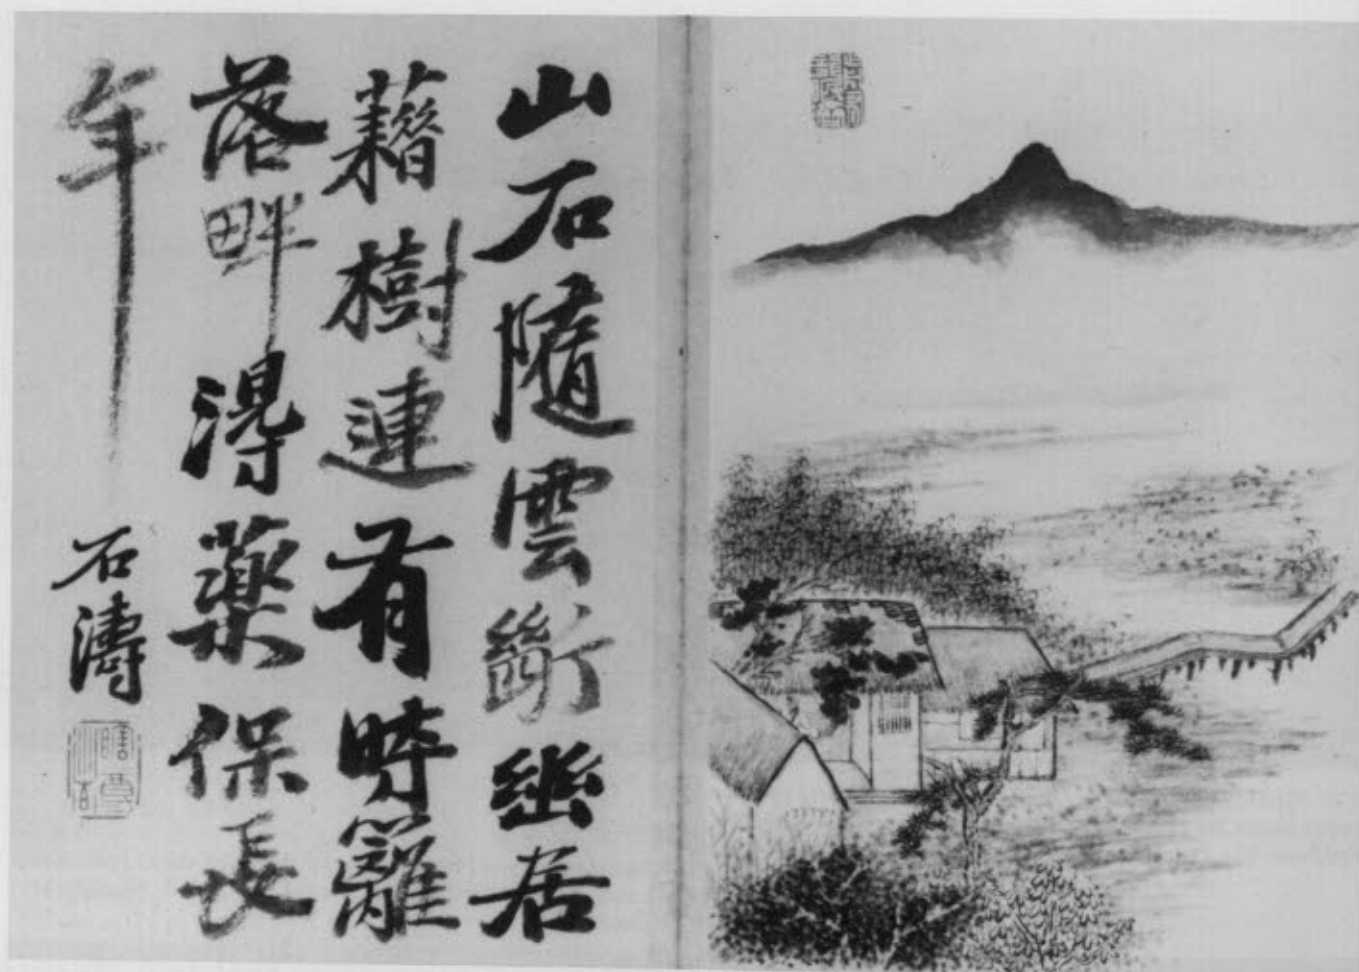 山石隨雲斷幽居
藉樹連有時籬
落畔得藥保長
年
石濤